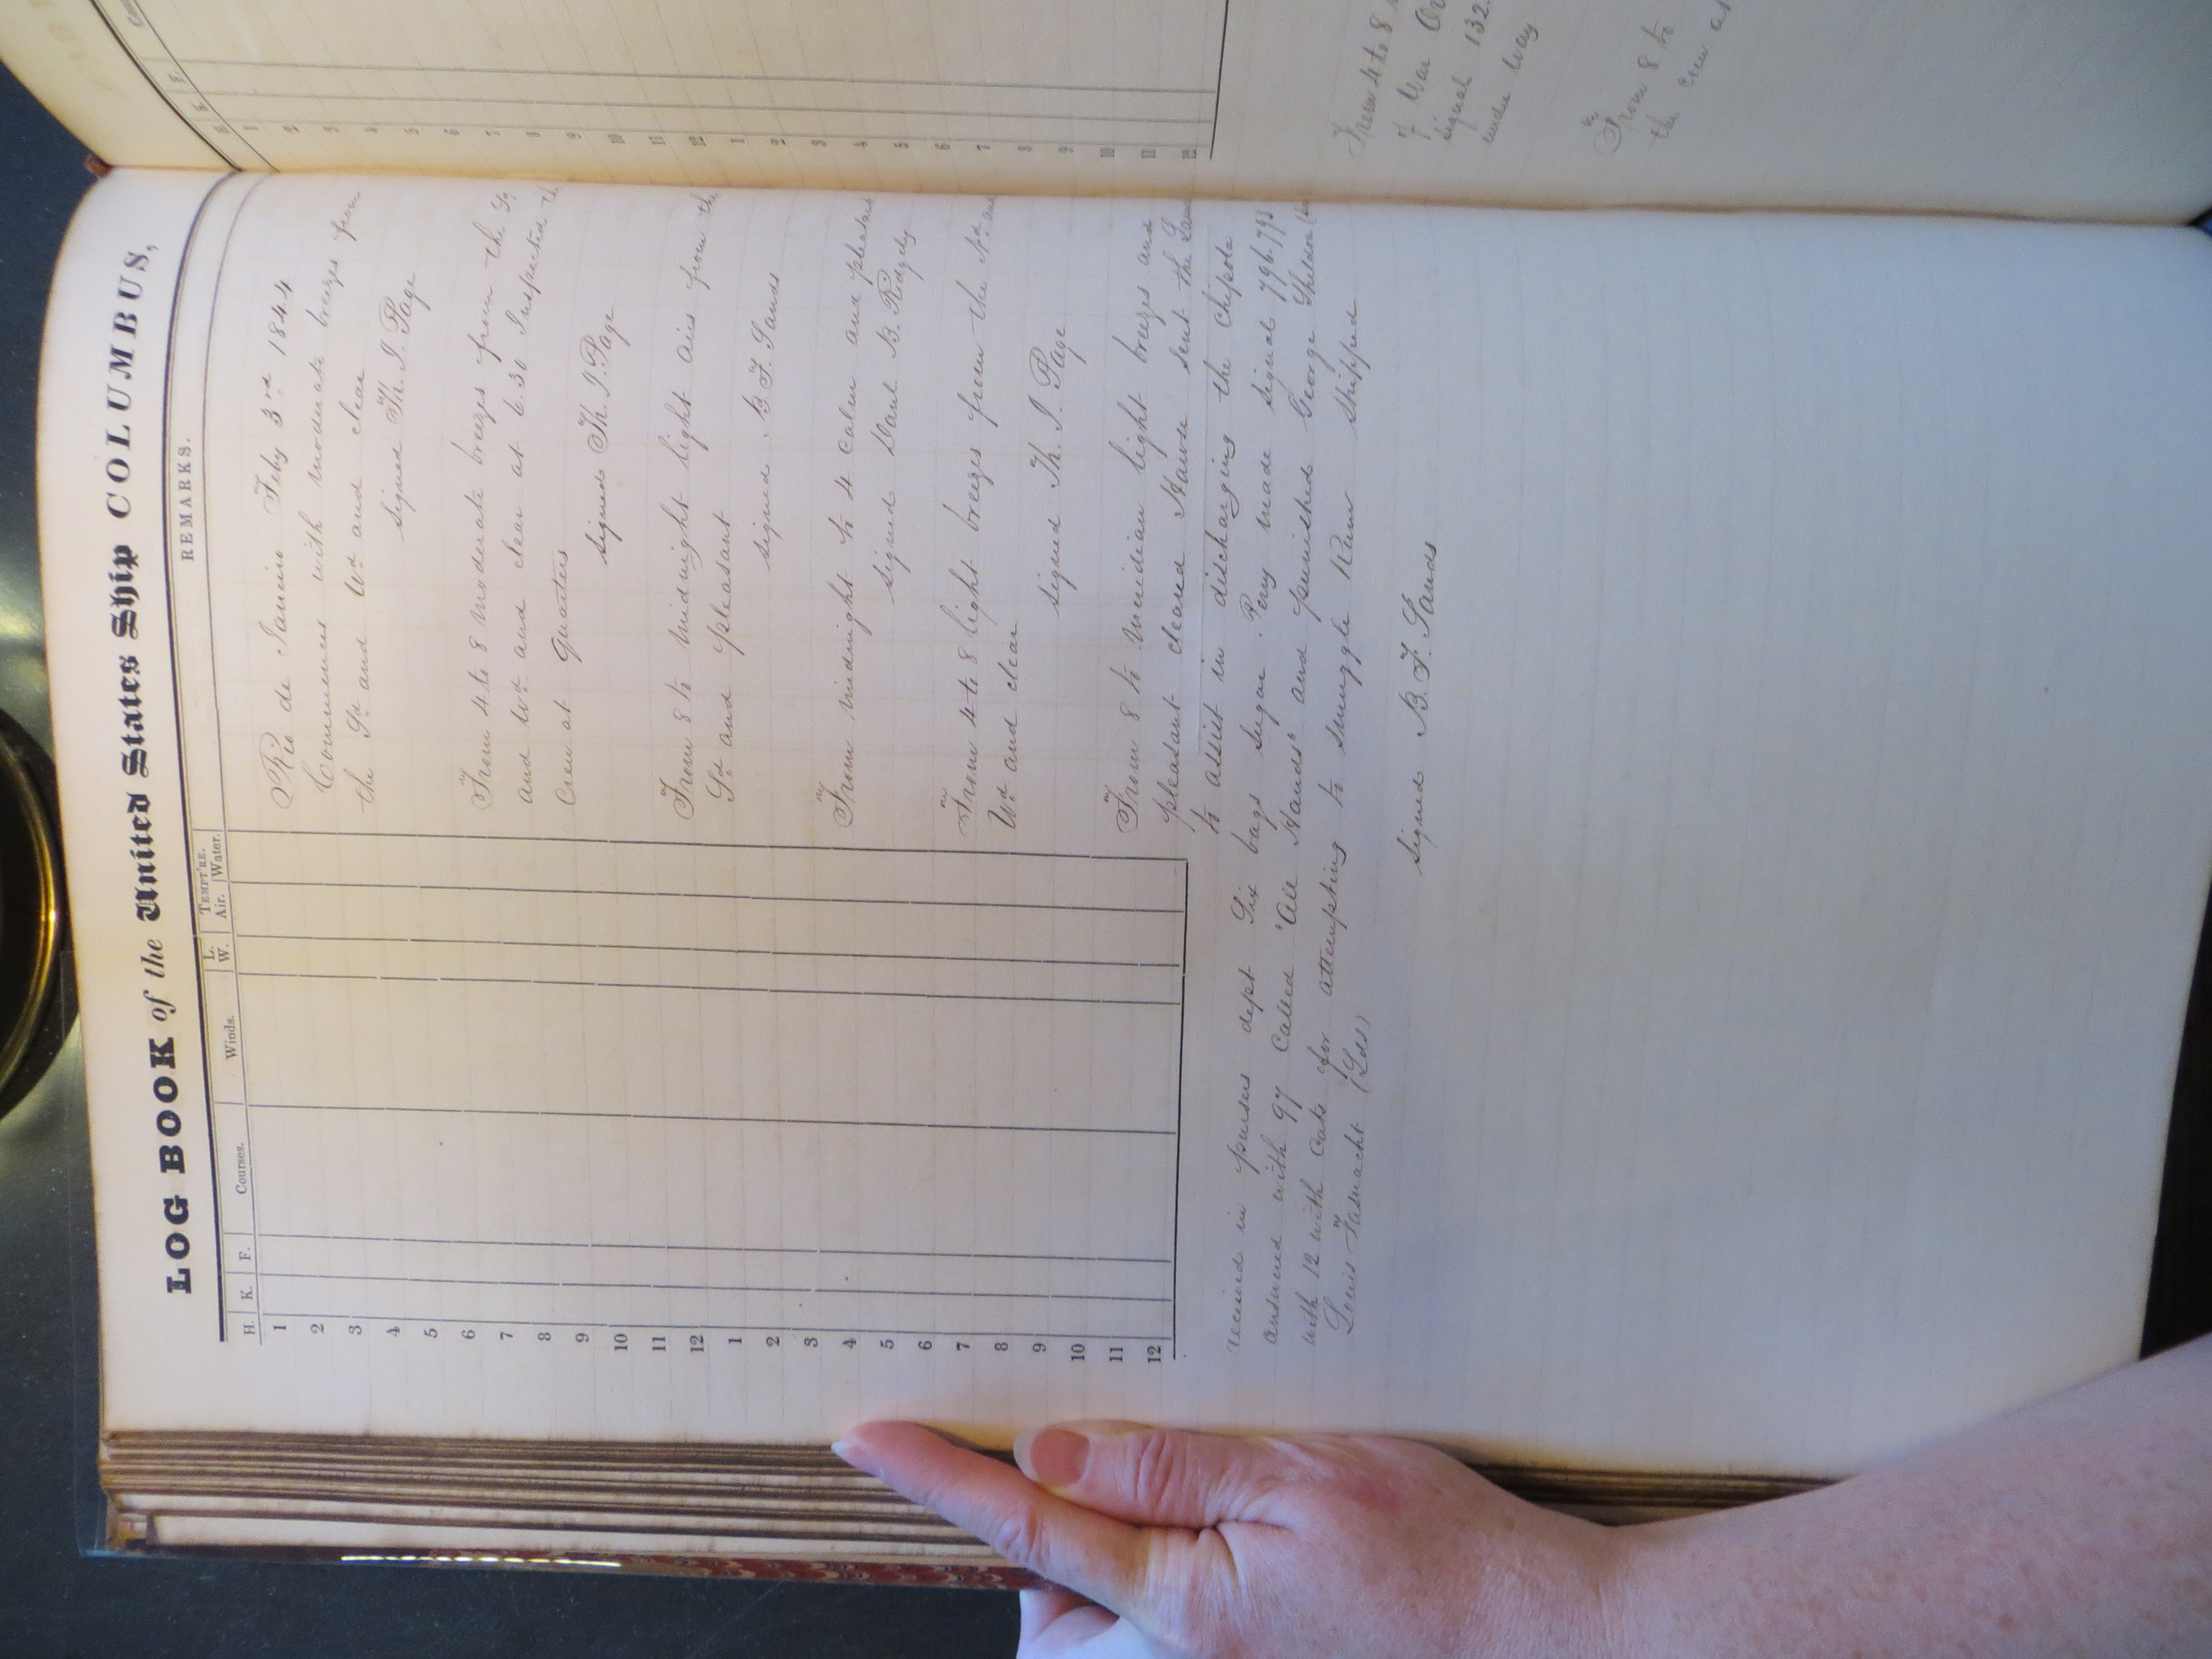 LOG BOOK of the United States Ship COLUMBUS,
H. K. F. Courses. Winds. L. W. TEMPT'RE. Air. Water. REMARKS.
1
2
3
4
5
6
7
8
9
10
11
12
1
2
3
4
5
6
7
8
9
10
11
12
Rio de Janeiro Feby 3rd 1844
Commences with moderate breezes from
the Sd and Wd and clear
Signed Th. J. Page
From 4 to 8 moderate breezes from the Sd
and Wd and clear at 6.30 Inspected the
Crew at quarters
Signed Th. J. Page
From 8 to midnight light airs from the
Sd and pleasant
Signed B. F. Sands
From midnight to 4 calm and pleasant
Signed Danl. B. Ridgely
From 4 to 8 light breezes from the Nd and
Wd and clear
Signed Th. J. Page
From 8 to Meridian light breezes and
pleasant cleared Hawse sent the
to assist in discharging the Chipola
received in pursers dept Six bags Sugar. Perry made signal 796.793
answered with 97 Called "All Hands" and punished George Sheldon
with 12 with Cats for attempting to smuggle Rum Shipped
Louis (Lds)
Signed B. F. Sands
1
2
3
4
5
6
7
8
9
10
11
12
1
2
3
4
5
6
7
8
9
10
11
12
From 4 to 8
of War
signal 132
under way
From 8 to
the crew at